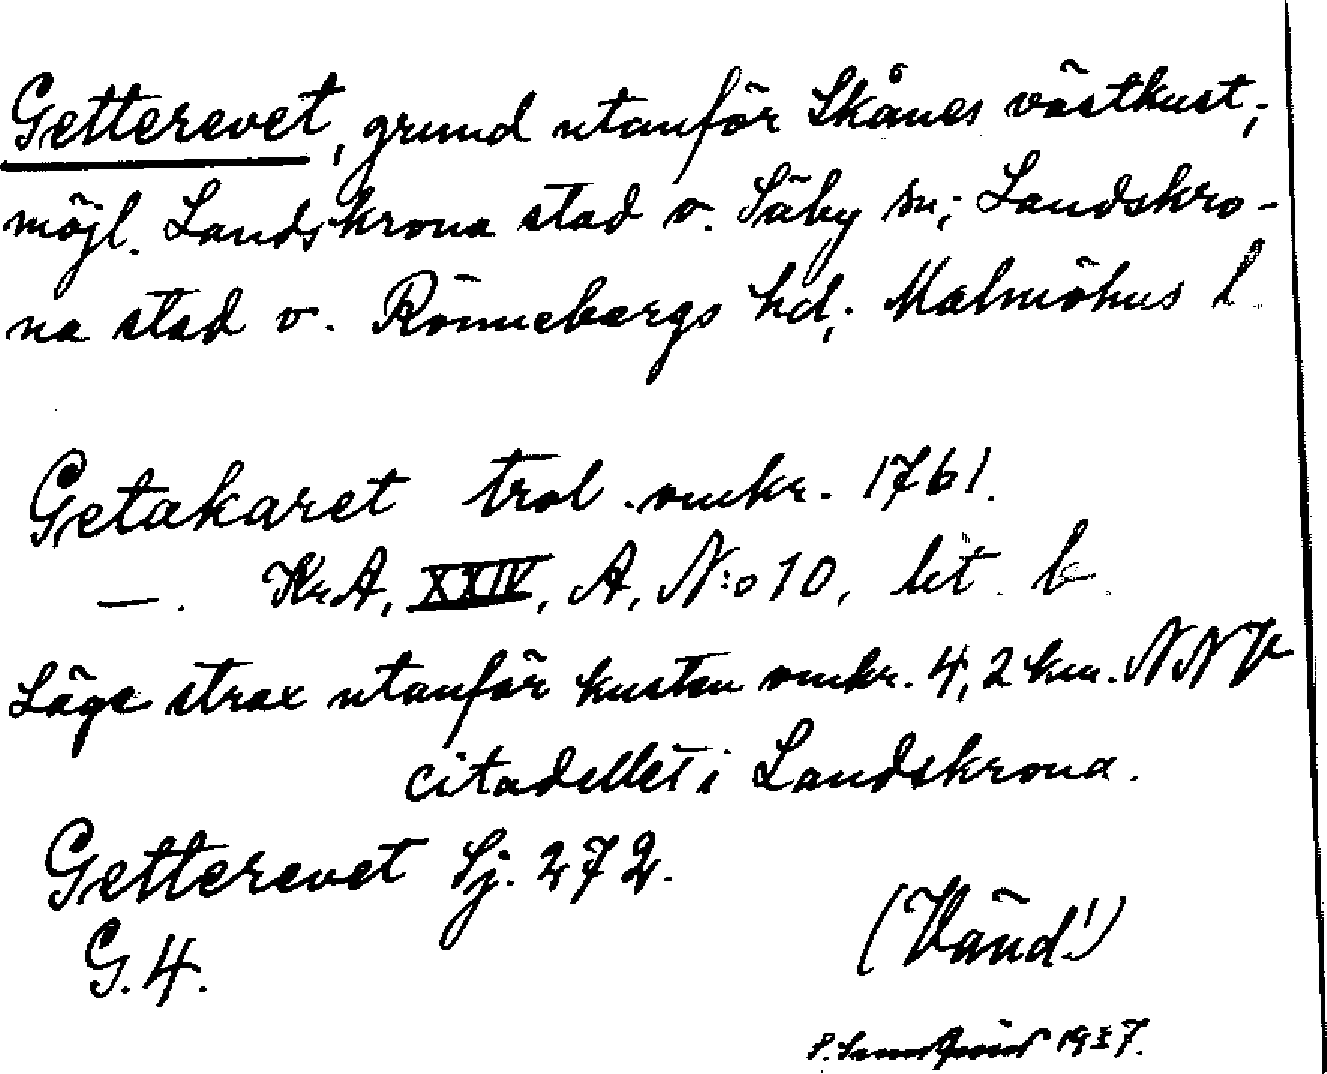 Getterevet, grund utanför Skånes västkust;
möjl. Landskrona stad o. Säby sn; Landskro-
na stad o. Rönnebergs hd; Malmöhus l.
Getakaret trol. omkr. 1761.
—. Kr.A, XXIV, A, N:o 10, lit. b.
Läge strax utanför kusten omkr. 4,2 km. NNV
citadellet i Landskrona.
Getterevet Sj. 272.
G. 4.
(Vänd!)
1937.